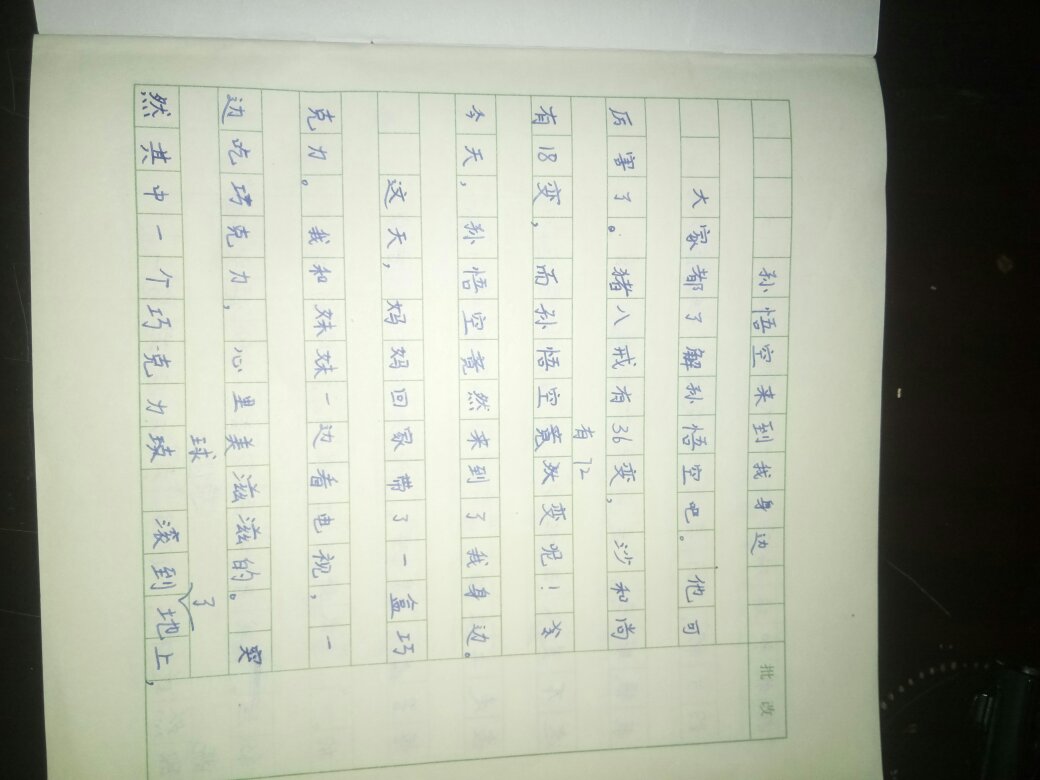 孙悟空来到我身边
批改
大家都了解孙悟空吧。他可
厉害了。猪八戒有36变，沙和尚
有72
有18变，而孙悟空竟变呢！
今天，孙悟空竟然来到了我身边。
这天，妈妈回家带了一盒巧
克力。我和妹妹一边看电视，一
边吃巧克力，心里美滋滋的。突
球 了
然其中一个巧克力滚到地上，